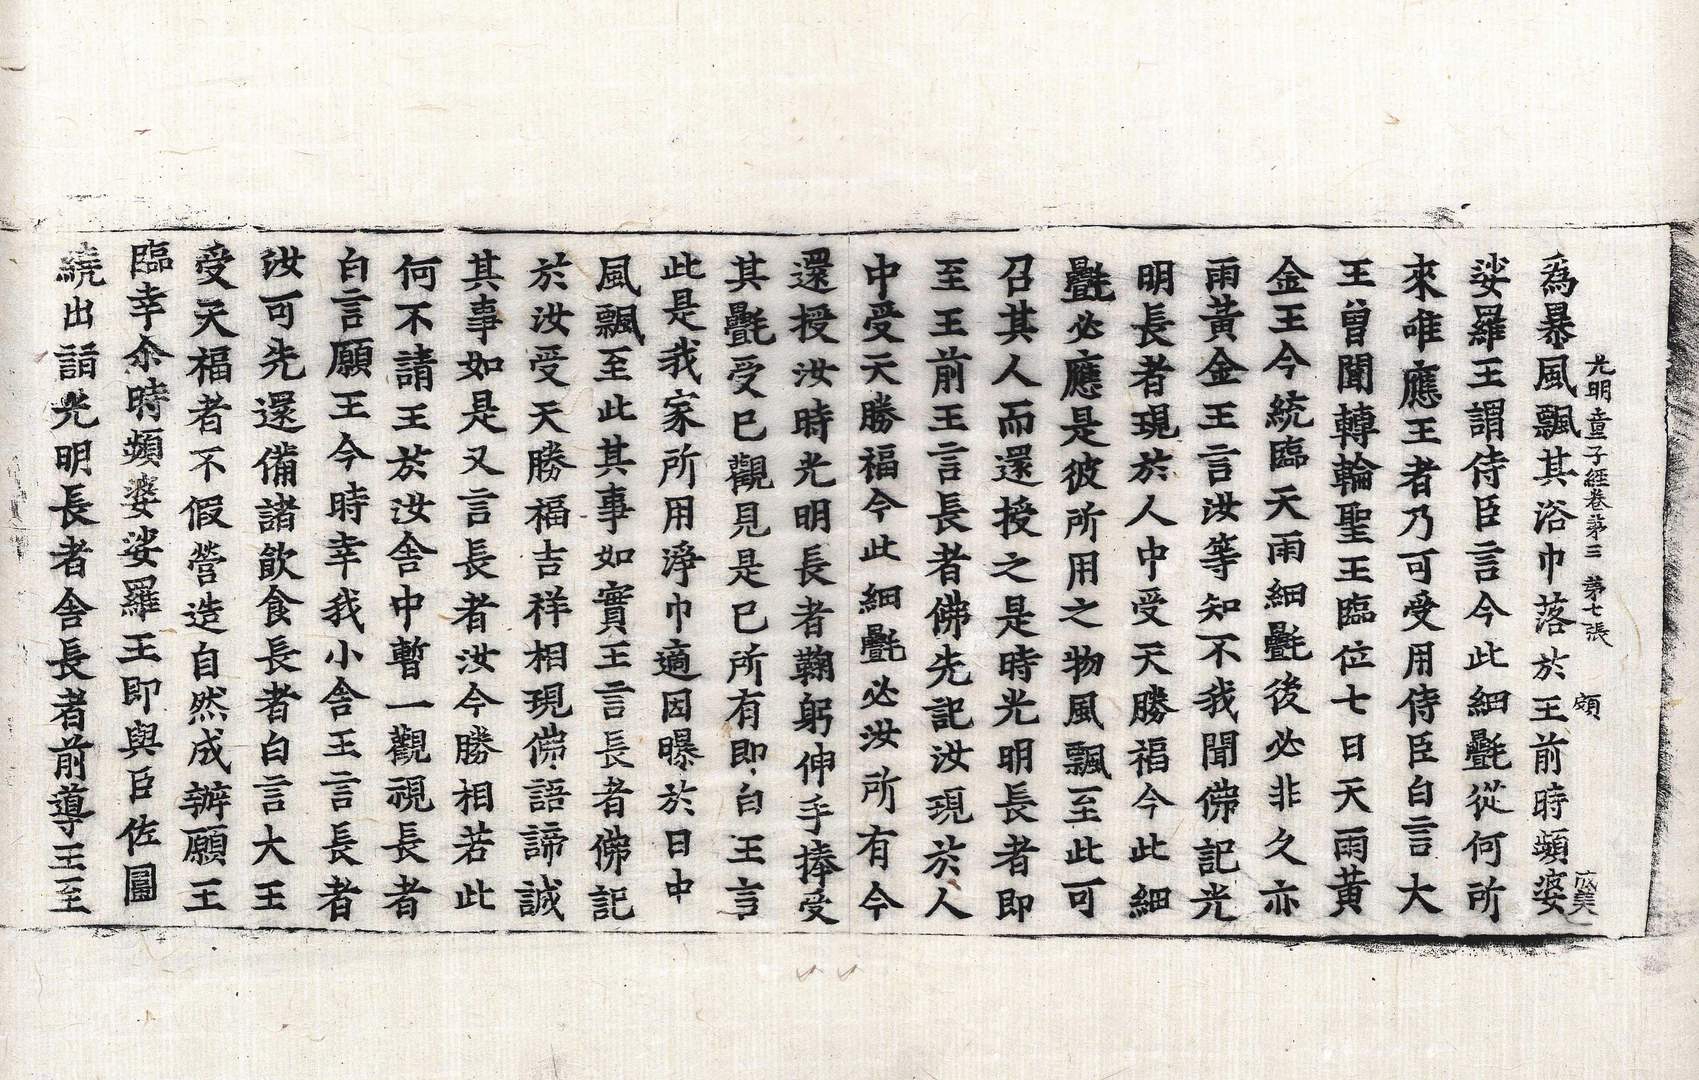 光明童子經卷第三 第七張 頗
為暴風飄其浴巾落於王前時頻婆
娑羅王謂侍臣言今此細㲲從何所
來唯應王者乃可受用侍臣白言大
王曾聞轉輪聖王臨位七日天雨黃
金王今統臨天雨細㲲後必非久亦
雨黃金王言汝等知不我聞佛記光
明長者現於人中受天勝福今此細
㲲必應是彼所用之物風飄至此可
召其人而還授之是時光明長者即
至王前王言長者佛先記汝現於人
中受天勝福今此細㲲必汝所有今
還授汝時光明長者鞠躬伸手捧受
其㲲受已觀見是已所有即白王言
此是我家所用淨巾適因曝於日中
風飄至此其事如實王言長者佛記
於汝受天勝福吉祥相現佛語諦誠
其事如是又言長者汝今勝相若此
何不請王於汝舍中暫一觀視長者
白言願王今時幸我小舍王言長者
汝可先還備諸飲食長者白言大王
受天福者不假營造自然成辦願王
臨幸尒時頻婆娑羅王即與臣佐圍
繞出詣光明長者舍長者前導王至